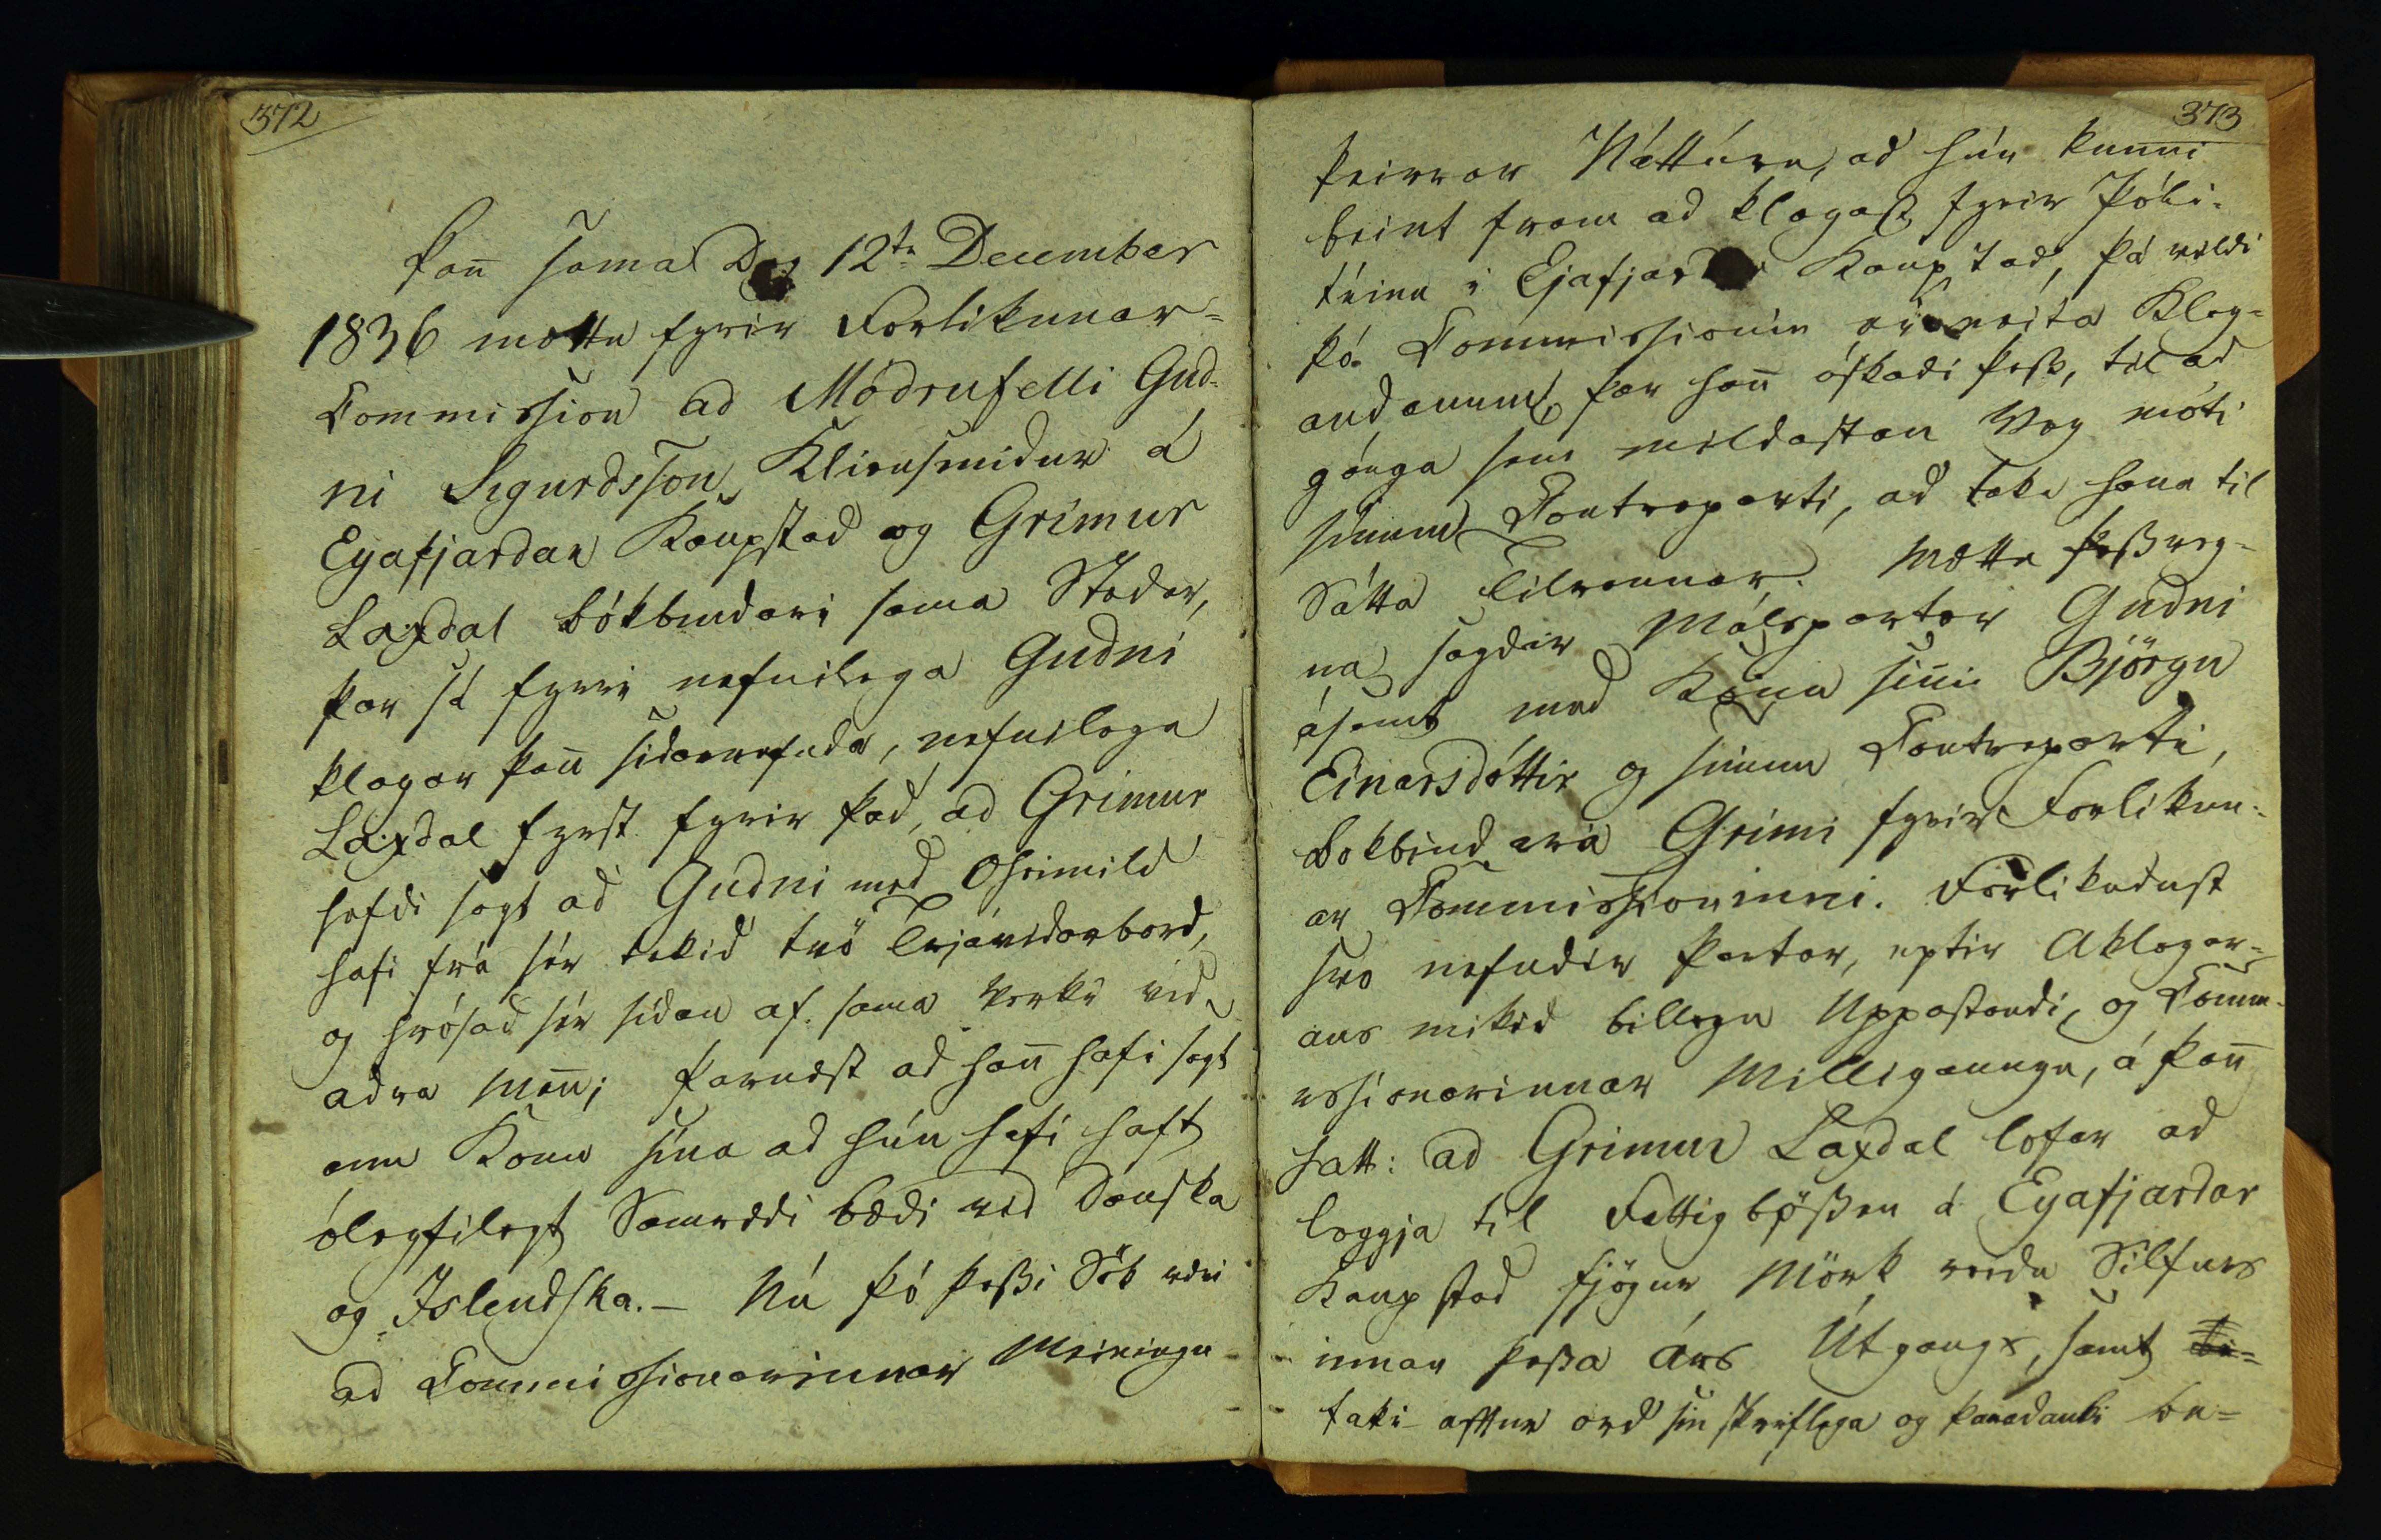 372
Þañ sama Dag 12te December
1836 mættu fyrir Forlikunar-
Commission ad Mödrufelli Gud-
ni Sigurdsson Kleinsmidur á
Eyafjardar Kaupstad og Grimur
Laxdal bókbindari sama Stadar,
þar sá fyrri nefnilega Gudni
klagar þañ sidarnefnda, nefnilega
Laxdal fyrst fyrir þad, ad Grimur
hefdi sagt ad Gudni med Oheimild
hafi frá sér tekid tvö Trjávidarbord,
og hrósad sér sidan af sama verki vid
adra Meñ; þarnæst ad hañ hafi sagt
um Konu sína ad hún hafi haft
ólöglegt Samrædi bædi vid Danska
og Islendska. – Nú þó þessi Sök væri
ad Commissionarinnar Meiningu
373
þeirrar Náttúru, ad hún kunni
beint fram ad klagast fyrir Póli-
tíinu i Ejafjardar Kaupstad, þá vildi
þó Commissionin ei neita Klag-
andanum, þar hañ óskadi þess, til ad
gánga sem mildastan Veg móti
sínum Contraparti, ad taka hann til
Sátta Tilraunar. Mættu þessveg-
na sagdir Málspartar Gudni
ásamt med Konu siñi Björgu
Einarsdóttir og sínum Contraparti,
Bokbindara Grimi fyrir Forlikun-
ar Commissioninni. Forlikudust
svo nefndir Partar, eptir Aklagar-
ans mikid billegu Uppástandi, og Comm-
issionarinnar Milligaungu, á þañ
hátt: ad Grimur Laxdal lofar ad
leggja til Fattigbössen á Eyafjardar
Kaupstad fjögur Mörk reidu Silfurs
innan þessa Árs Útgangs, samt
taki aftur ord sin skriflega og þaradauki be-